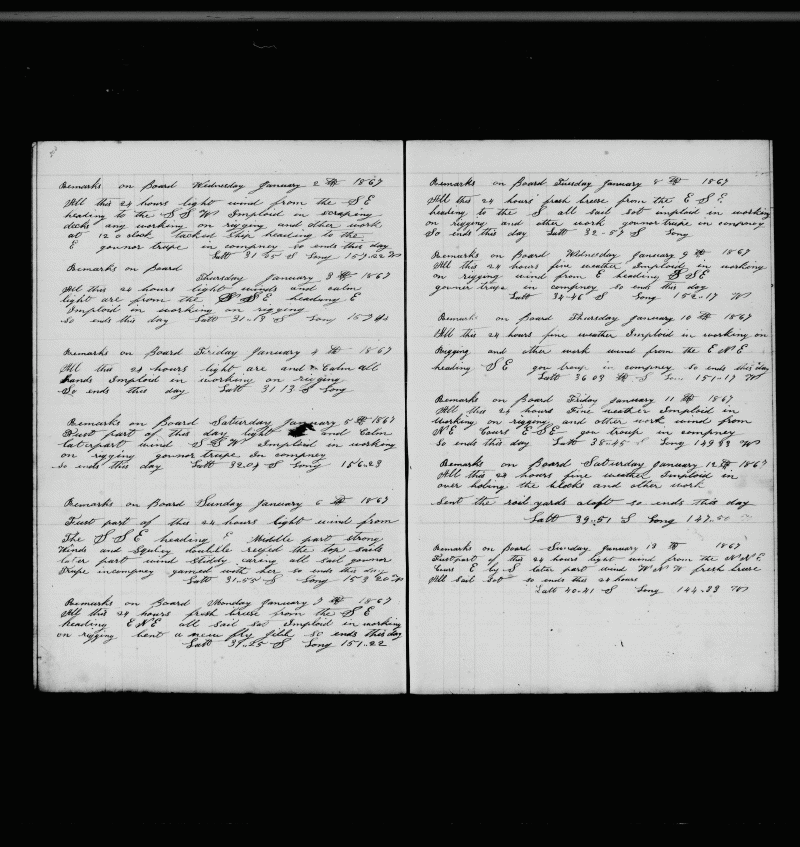 Remarks on Board Wednesday January 2 th 1867
All this 24 hours light wind from the S E
heading to the S S W Imploid in scraping
decks any working on rigging and other work
at 12 o clock tacked ship heading to the
E gounor trupe in compney so ends this day
Latt 31 25 S Long 157-22 W
Remarks on Board
Thursday January 3 th 1867
All this 24 hours light winds and calm
light are from the S S E heading E
Imploid in working on rigging
So ends this day Latt 31-13 S Long
Remarks on Board Fireday January 4 th 1867
All this 24 hours light are and Calm all
hands Imploid in working on rigging
So ends this day Latt 31 13 S Long
Remarks on Board Saturday January 5 th 1867
Furst part of this day light and Calm
laterpart wind S S W Imploid in working
on rigging gouner trupe In compney
so ends this day Latt 32.04 S Long 156-23
Remarks on Board Sunday January 6 th 1867
Furst part of this 24 hours light wind from
The S S E heading E Middle part strong
Winds and Squley doubble reefed the top sails
later part wind Stiddy caring all sail gouvnor
Trupe incompney gamed with her so ends this day
Latt 31-55 S Long 153 20 W
Remarks on Board Monday January 7 th 1867
All this 24 hours fresh breese from the S E
heading E N E all sail sot Imploid in working
on rigging bent a new fly jibb so ends this day
Latt 31-25 S Long 151-22
Remarks on Board Tuesday January 8 th 1867
All this 24 hours fresh breese from the E S E
heading to the S all sail sot imploid in working
on rigging and other work gonnor trupe in compney
So ends this day Latt 32-57 S Long
Remarks on Board Wednesday January 9 th 1867
All this 24 hours fine weather Imploid in working
on rigging wind from E heading S S E
gouner trupe in compney so ends this day
Latt 34-46 S Long 152-17 W
Remark on Board Thursday January 10 th 1867
All this 24 hours fine weather Imploid in working on
Rigging and other work wind from the E N E
heading S E gou troup in compney so ends this day
Latt 36 03 S Lon 151-17 W
Remarks on Board Friday January 11 th 1867
All this 24 hours Fine weather Imploid in
working on rigging and other work wind from
N E Cours E S E gou troup in compney
So ends this day Latt 38-45 S Long 149 33 W
Remarks on Board Saturday January 12 th 1867
All this 24 hours fine weather Imploid in
over holing the blocks and other work
Sent the roil yards aloft so ends this day
Latt 39-51 S Long 147-50
Remarks on Board Sunday January 13 th 1867
Furstpart of this 24 hours light wind from the N N E
Cours E by S later part wind W N W fresh breese
All Sail Sot so ends this 24 hours
Latt 40-41 S Long 144-33 W